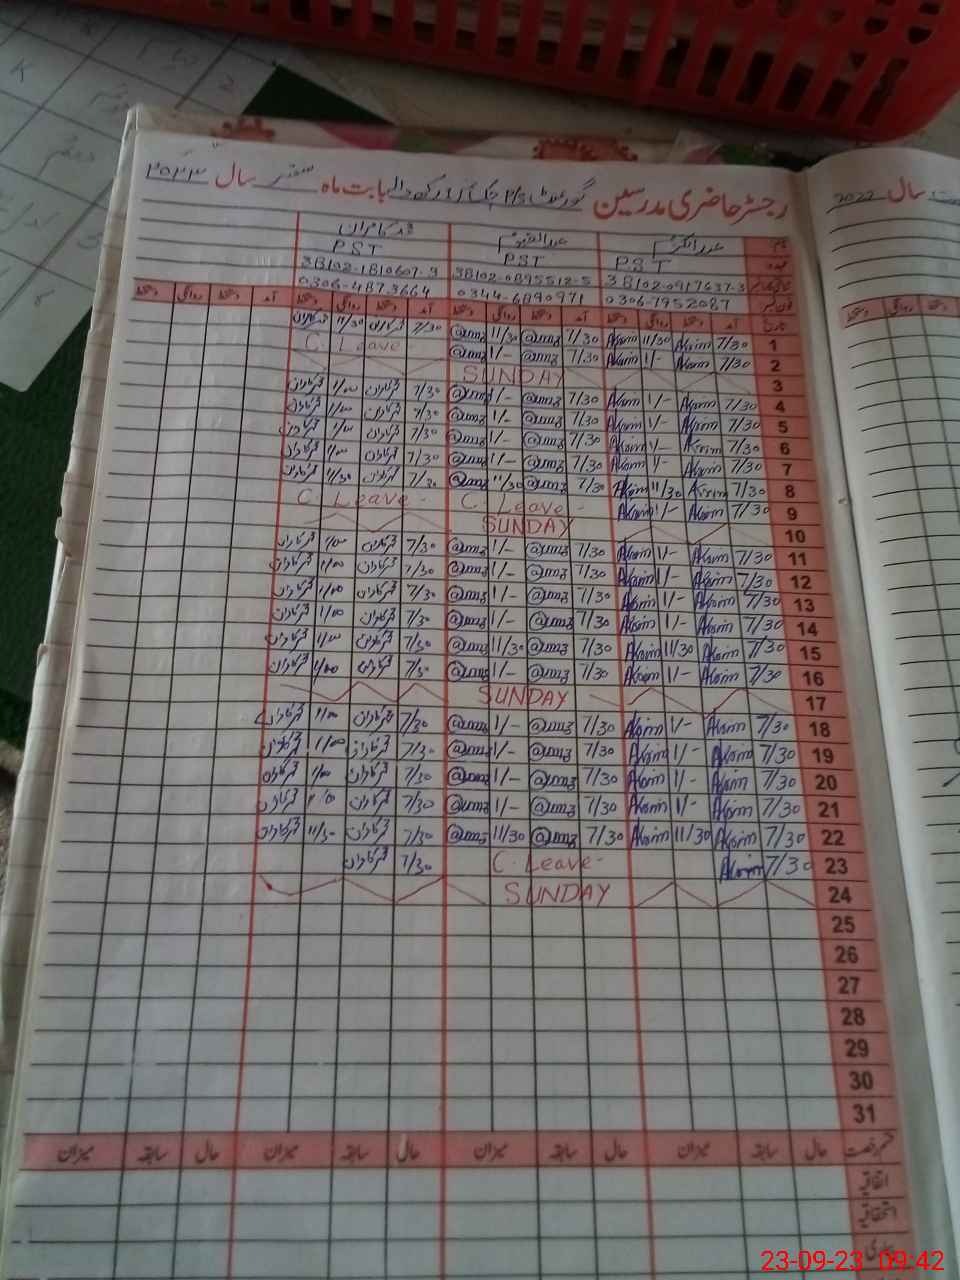 رجسٹر حاضری مدرسین گورنمنٹ P/S بابت ماہ ستمبر سال ۲۰۲۳
سال 2022
نام عبدالکریم عبدالقیوم محمد کامران
عہدہ PST PST PST
38102-0917637-3 38102-0895512-5 38102-1810607-9
فون نمبر 0306-7952087 0344-6890971 0306-4873664
تاریخ آمد دستخط روانگی دستخط آمد دستخط روانگی دستخط آمد دستخط روانگی دستخط آمد دستخط روانگی دستخط
1 7/30 Akrim 11/30 Akrim 7/30 @umz 11/30 @umz 7/30 کامران 11/30 کامران
2 7/30 Akrim 1/- Akrim 7/30 @umz 1/- @umz C. Leave -
3 SUNDAY
4 7/30 Akrim 1/- Akrim 7/30 @umz 1/- @umz 7/30 کامران 1/00 کامران
5 7/30 Akrim 1/- Akrim 7/30 @umz 1/- @umz 7/30 کامران 1/00 کامران
6 7/30 Akrim 1/- Akrim 7/30 @umz 1/- @umz 7/30 کامران 1/00 کامران
7 7/30 Akrim 1/- Akrim 7/30 @umz 1/- @umz 7/30 کامران 1/00 کامران
8 7/30 Akrim 11/30 Akrim 7/30 @umz 11/30 @umz 7/30 کامران 11/30 کامران
9 7/30 Akrim 1/- Akrim C. Leave - C. Leave -
10 SUNDAY
11 7/30 Akrim 1/- Akrim 7/30 @umz 1/- @umz 7/30 کامران 1/00 کامران
12 7/30 Akrim 1/- Akrim 7/30 @umz 1/- @umz 7/30 کامران 1/00 کامران
13 7/30 Akrim 1/- Akrim 7/30 @umz 1/- @umz 7/30 کامران 1/00 کامران
14 7/30 Akrim 1/- Akrim 7/30 @umz 1/- @umz 7/30 کامران 1/00 کامران
15 7/30 Akrim 11/30 Akrim 7/30 @umz 11/30 @umz 7/30 کامران کامران
16 7/30 Akrim 1/- Akrim 7/30 @umz 1/- @umz 7/30 کامران 1/00 کامران
17 SUNDAY
18 7/30 Akrim 1/- Akrim 7/30 @umz 1/- @umz 7/30 کامران 1/00 کامران
19 7/30 Akrim 1/- Akrim 7/30 @umz 1/- @umz 7/30 کامران 1/00 کامران
20 7/30 Akrim 1/- Akrim 7/30 @umz 1/- @umz 7/30 کامران 1/00 کامران
21 7/30 Akrim 1/- Akrim 7/30 @umz 1/- @umz 7/30 کامران 1/00 کامران
22 7/30 Akrim 11/30 Akrim 7/30 @umz 11/30 @umz 7/30 کامران 11/30 کامران
23 7/30 Akrim C. Leave - 7/30 کامران
24 SUNDAY
25
26
27
28
29
30
31
قسم رخصت حال سابقہ میزان حال سابقہ میزان حال سابقہ میزان حال سابقہ میزان
اتفاقیہ
استحقاقیہ
بیماری
23-09-23 09:42